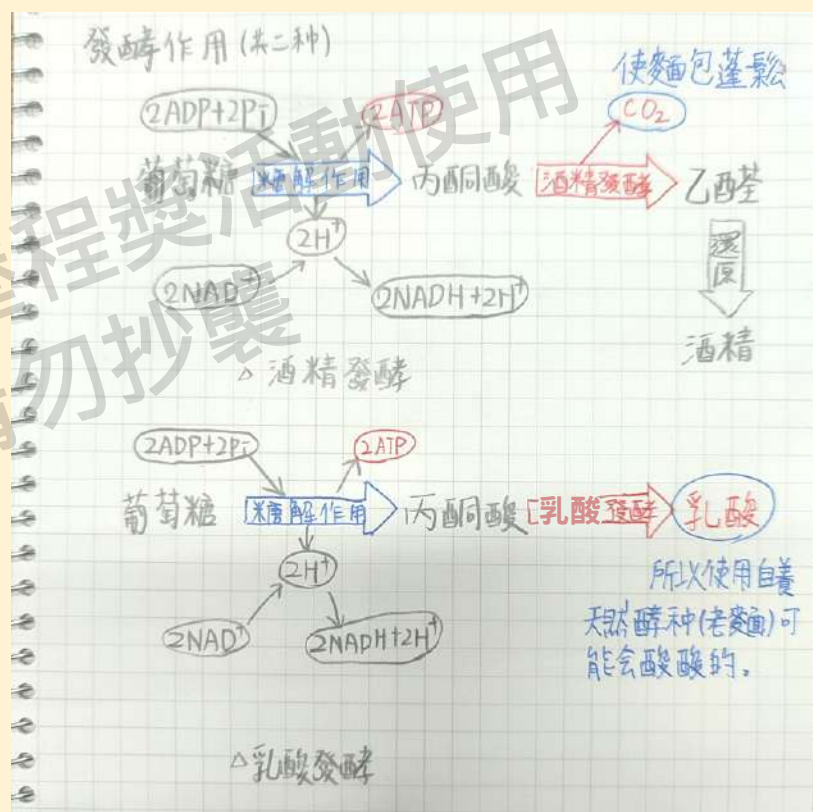 發酵作用(共二种)
使麵包蓬鬆
2ADP+2Pi
2ATP
CO₂
葡萄糖
糖解作用
丙酮酸
酒精發酵
乙醛
2H⁺
還原
2NAD⁺
2NADH+2H⁺
酒精
△酒精發酵
2ADP+2Pi
2ATP
葡萄糖
糖解作用
丙酮酸
乳酸發酵
乳酸
2H⁺
所以使用自養
天然酵种(老麵)可
能会酸酸的。
2NAD⁺
2NADH+2H⁺
△乳酸發酵
程獎活動使用
勿抄襲